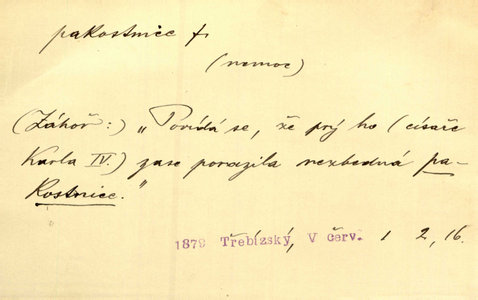 pakostnice f.
(nemoc)
(Záhoř:) „Povídá se, že prý ho (císaře
Karla IV.) zase porazila nezbedná pa-
kostnice.“
1879 Třebízský, V červ. 1 2, 16.